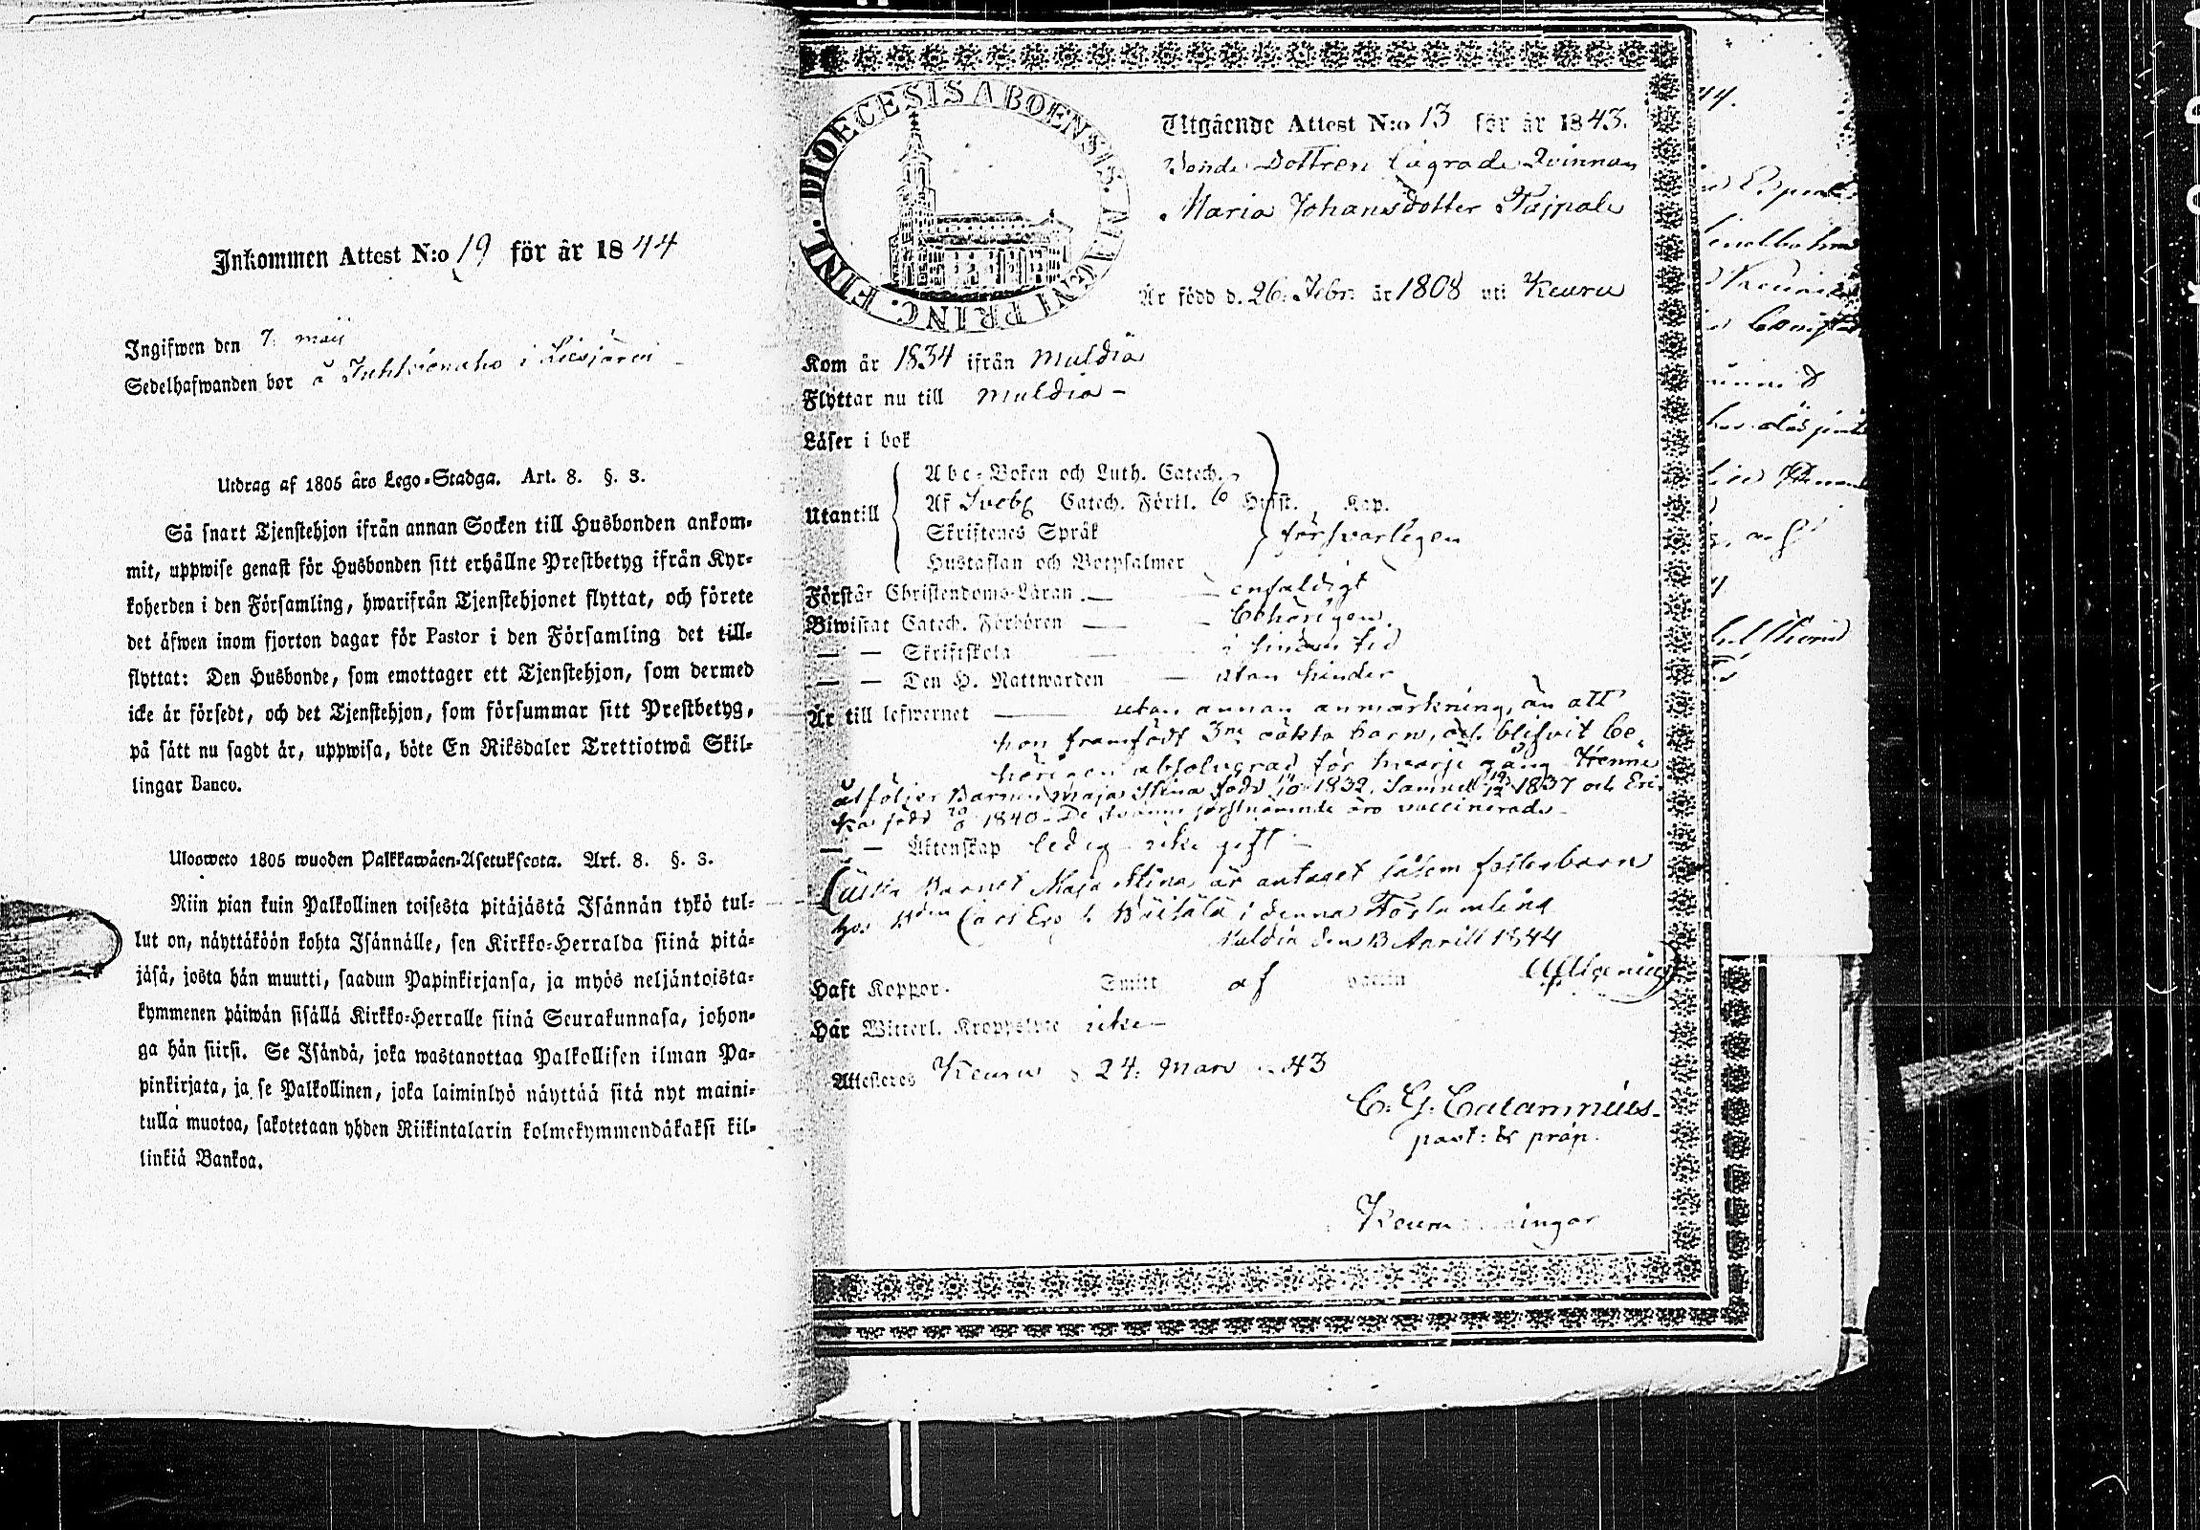 Inkommen Attest N:o 19 för år 1844
Ingifwen den 7. maii
Sedelhafwanden bor å i
Utdrag af 1805 års Lego-Stadga. Art. 8. §. 3.
Så snart Tjenstehjon ifrån annan Socken till Husbonden ankom-
mit, uppwise genast för Husbonden sitt erhållne Prestbetyg ifrån Kyr-
koherden i den Församling, hwarifrån Tjenstehjonet flyttat, och förete
det äfwen inom fjorton dagar för Pastor i den Församling det till-
flyttat: Den Husbonde, som emottager ett Tjenstehjon, som dermed
icke är försedt, och det Tjenstehjon, som försummar sitt Prestbetyg,
på sätt nu sagdt är, uppwisa, böte En Riksdaler Trettiotwå Skil-
lingar Banco.
Ulosweto 1805 wuoden Palkkawäen-Asetuksesta. Art. 8. §. 3.
Niin pian kuin Palkollinen toisesta pitäjästä Isännän tykö tul-
lut on, näyttäköön kohta Isännälle, sen Kirkko-Herralda siinä pitä-
jäsä, josta hän muutti, saadun Papinkirjansa, ja myös neljäntoista-
kymmenen päiwän sisällä Kirkko-Herralle siinä Seurakunnasa, johon-
ga hän siirsi. Se Isändä, joka wastanottaa Palkollisen ilman Pa-
pinkirjata, ja se Palkollinen, joka laiminlyö näyttää sitä nyt maini-
tulla muotoa, sakotetaan yhden Riikintalarin kolmekymmendäkaksi kil-
linkiä Bankoa.
DIOECESIS ABOENSIS. MAGNI PRINC. FINL.
Utgående Attest N:o 13 för år 1843.
Bonde Dottren Lägrade Qvinnan
Maria Johansdotter
Är född d. 26. Febr: år 1808 uti Keuru
Kom år 1834 ifrån Muldia
Flyttar nu till Muldia –
Läser i bok
Utantill
Abc-Boken och Luth. Catech.
Af Sveb Catech. Förkl. 6 Hufst. Kap.
Skriftenes Språk försvarligen
Hustaflan och Botpsalmer
Förstår Christendoms-Läran enfaldigt
Biwistat Catech. Förhören behörigen.
— — Skriftskola i sinom tid
— — Den H. Nattwarden utan hinder
Är till lefwernet utan annan anmärkning, än att
hon framfödt 3ne oäkta barn, och blifvit be-
hörigen absolverad för hvarje gång. Henne
åtfölja Barnen Maja Stina född 1832, Samuel 1837 och Eri-
ka född 1840. De tvänne förstnämnde äro vaccinerade
— — Äktenskap ledig icke gift
Barnet Maja Stina är antaget såsom fosterbarn
hos i denna Församling
Muldia den 13 Aprill 1844
Haft Koppor. Smitt af vaccin
Har Witterl. Kroppslyte icke –
Attesteres Keuru d. 24. Mars 43
C. G. Calamnius
past: & präp.